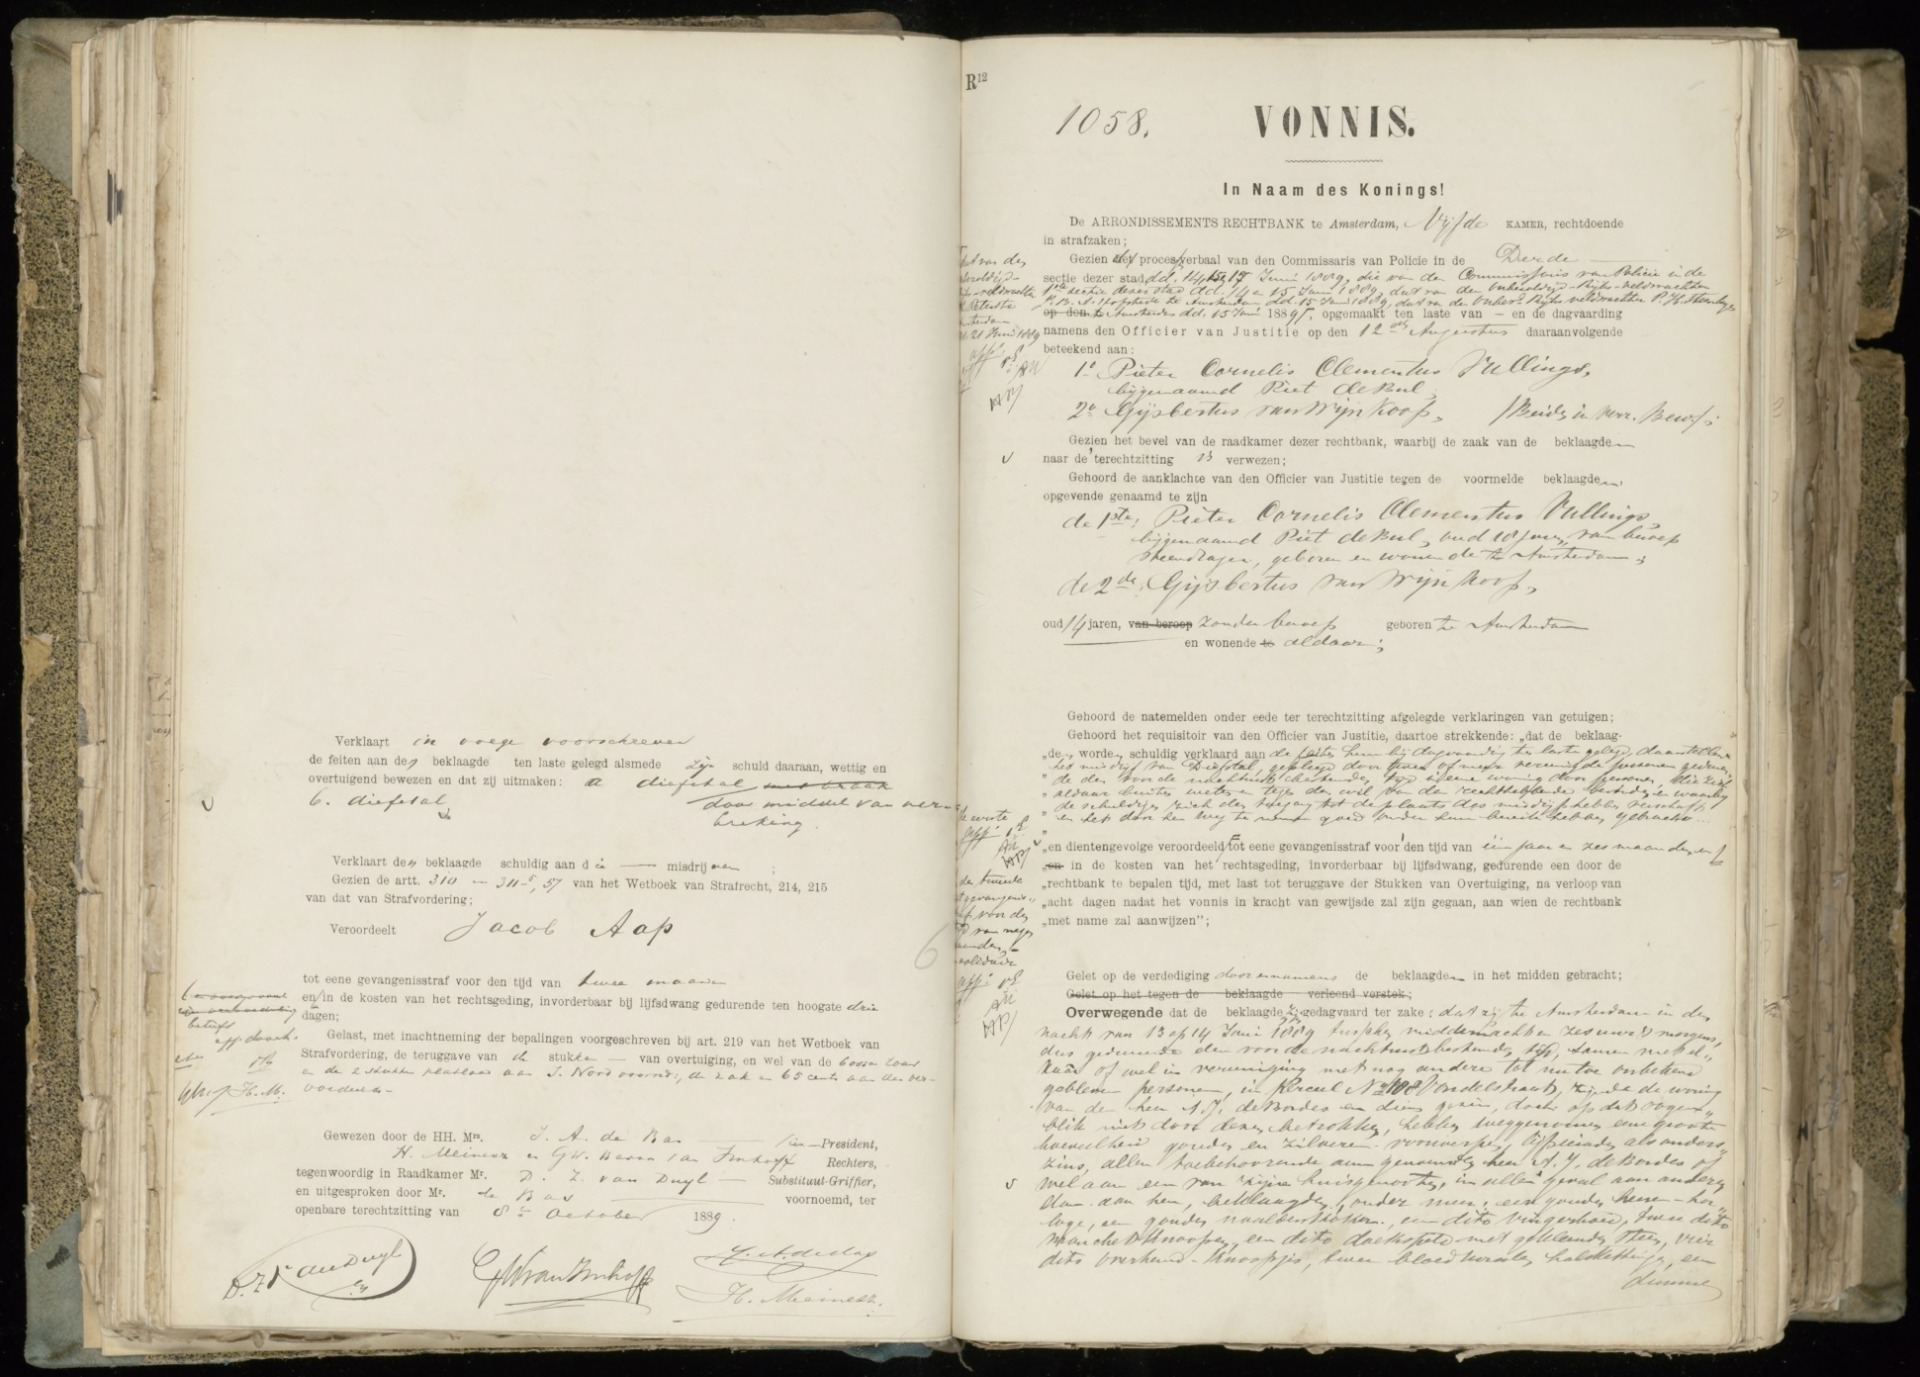 Verklaart in voege voorschreven
de feiten aan den beklaagde ten laste gelegd alsmede zijn schuld daaraan, wettig en
overtuigend bewezen en dat zij uitmaken: a diefstal met braak
door middel van ver-
b. diefstal
breking.
Verklaart den beklaagde schuldig aan die misdrijven ;
Gezien de artt. 310 en 311-5, 57 van het Wetboek van Strafrecht, 214, 215
van dat van Strafvordering;
Veroordeelt Jacob Aap
tot eene gevangenisstraf voor den tijd van twee maanden
en in de kosten van het rechtsgeding, invorderbaar bij lijfsdwang gedurende ten hoogste drie
dagen;
Gelast, met inachtneming der bepalingen voorgeschreven bij art. 219 van het Wetboek van
Strafvordering, de teruggave van de stukken van overtuiging, en wel van de
en de 2 stukken aan J. Noord voornd., de zak en 65 cents aan den ver-
oordeelde
H. M.
Gewezen door de HH. Mrs. J. A. de Bas President,
H. Meinesz en GW. Baron van Imhoff Rechters,
tegenwoordig in Raadkamer Mr. D. Z. van Duyl Substituut-Griffier,
en uitgesproken door Mr. de Bas voornoemd, ter
openbare terechtzitting van 8sten October 1889.
D. Z. van Duyl
GW van Imhoff
J. A. de Bas
H. Meinesz.
R12
1058. VONNIS.
In Naam des Konings!
De ARRONDISSEMENTS RECHTBANK te Amsterdam, Vijfde KAMER, rechtdoende
in strafzaken;
Gezien het proces verbaal van den Commissaris van Policie in de Derde
sectie dezer stad dd. 14, 15, 17 Juni 1889, die van den Commissaris van Policie in de
1ste sectie dezer stad dd. 14 en 15 Juni 1889, dat van den onbezoldigd-Rijks-veldwachter
te Amsterdam dd. 15 Juni 1889, dat van den onbez. Rijks veldwachter P. H.
op den te Amsterdam dd. 15 Juni 1889, opgemaakt ten laste van – en de dagvaarding
namens den Officier van Justitie op den 12den Augustus daaraanvolgende
beteekend aan:
1o Pieter Cornelis Clementus Vullings,
bijgenaamd Piet de Bul,
2o Gijsbertus van Wijnkoop, (Beiden in verz. Bew.);
Gezien het bevel van de raadkamer dezer rechtbank, waarbij de zaak van de beklaagden
naar de terechtzitting is verwezen;
Gehoord de aanklachte van den Officier van Justitie tegen de voormelde beklaagden,
opgevende genaamd te zijn
de 1ste: Pieter Cornelis Clementus Vullings,
bijgenaamd Piet de Bul, oud 18 jaren, van beroep
steendrager, geboren en wonende te Amsterdam;
de 2de: Gijsbertus van Wijnkoop,
oud 14 jaren, van beroep zonder beroep geboren te Amsterdam
en wonende te aldaar;
Gehoord de natemelden onder eede ter terechtzitting afgelegde verklaringen van getuigen;
Gehoord het requisitoir van den Officier van Justitie, daartoe strekkende: „dat de beklaag-
„den worden schuldig verklaard aan de feiten hem bij dagvaarding ten laste gelegd, daarstellende
het misdrijf van Diefstal, gepleegd door twee of meer vereenigde personen gedurende
de voor de nachtrust bestemden tijd in eene woning door personen, die zich
aldaar buiten weten en tegen den wil van den rechthebbende bevinden en waarbij
de schuldigen zich den toegang tot de plaats des misdrijfs hebben verschaft
en het door hen weg te nemen goed onder hun bereik hebben gebracht
„en dientengevolge veroordeeld tot eene gevangenisstraf voor den tijd van één jaar en zes maanden, en
„en in de kosten van het rechtsgeding, invorderbaar bij lijfsdwang, gedurende een door de
„rechtbank te bepalen tijd, met last tot teruggave der Stukken van Overtuiging, na verloop van
„acht dagen nadat het vonnis in kracht van gewijsde zal zijn gegaan, aan wien de rechtbank
„met name zal aanwijzen”;
Gelet op de verdediging door en namens de beklaagden in het midden gebracht;
Gelet op het tegen de beklaagde verleend verstek;
Overwegende dat de beklaagden zijn gedagvaard ter zake: dat zij te Amsterdam in den
nacht van 13 op 14 Juni 1889 tusschen middernacht en zes uur 's morgens,
dus gedurende den voor de nachtrust bestemden tijd, samen met el-
kaar of wel in vereeniging met nog andere tot nu toe onbekend
gebleven personen, in perceel No 108 Vondelstraat, zijnde de woning
van den heer A. J. de Bordes en diens gezin, doch op dat oogen-
blik niet door dezen betrokken, hebben weggenomen eene groote
hoeveelheid gouden en zilveren voorwerpen, lijfsieraden als anders-
zins, allen toebehoorende aan genoemden heer A. J. de Bordes of
wel aan een van zijne huisgenooten, in allen geval aan anderen
dan aan hen, beklaagden, onder meer: een gouden heeren-hor-
loge, een gouden naaldenkoker, een dito vingerhoed, twee dito
manchetknoopen, een dito doekspeld met gekleurden steen, vier
dito overhemd-knoopjes, twee bloedkoralen halskettingen, een